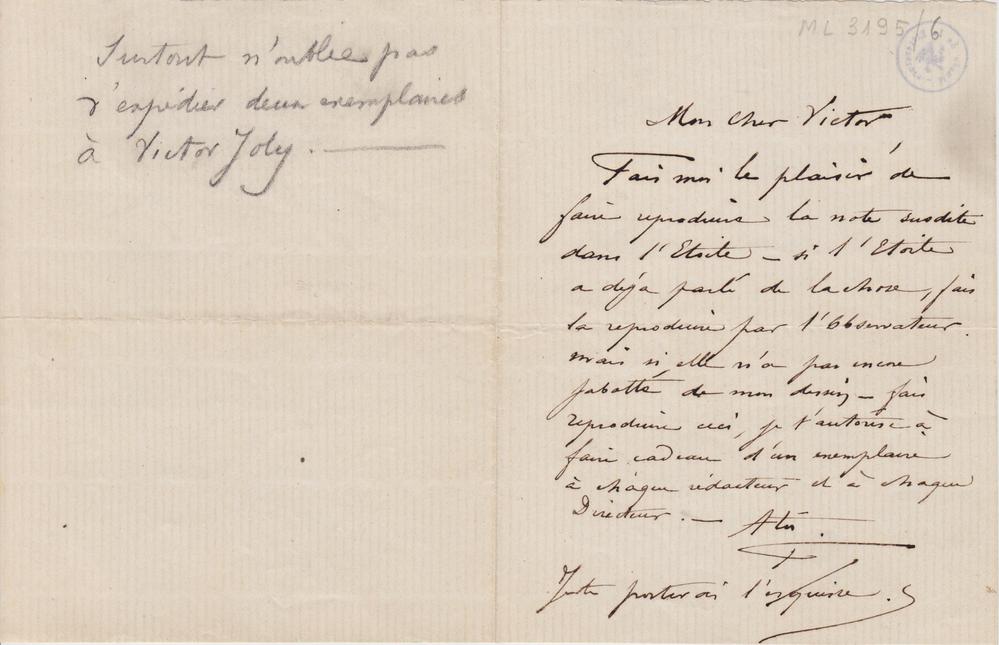 Surtout n'oublie pas
d'expédier deux exemplaires
à Victor Joly. —
ML 3195/6
Mon cher Victor
Fais moi le plaisir de
faire reproduire la note susdite
dans l'Etoile – si l'Etoile
a déjà parlé de la chose, fais
la reproduire par l'Observateur.
mais si elle n'a pas encore
jabotté de mon dessin – fais
reproduire ceci, je t'autorise à
faire cadeau d'un exemplaire
à chaque rédacteur et à chaque
Directeur. –
Je te porterai l'esquisse.